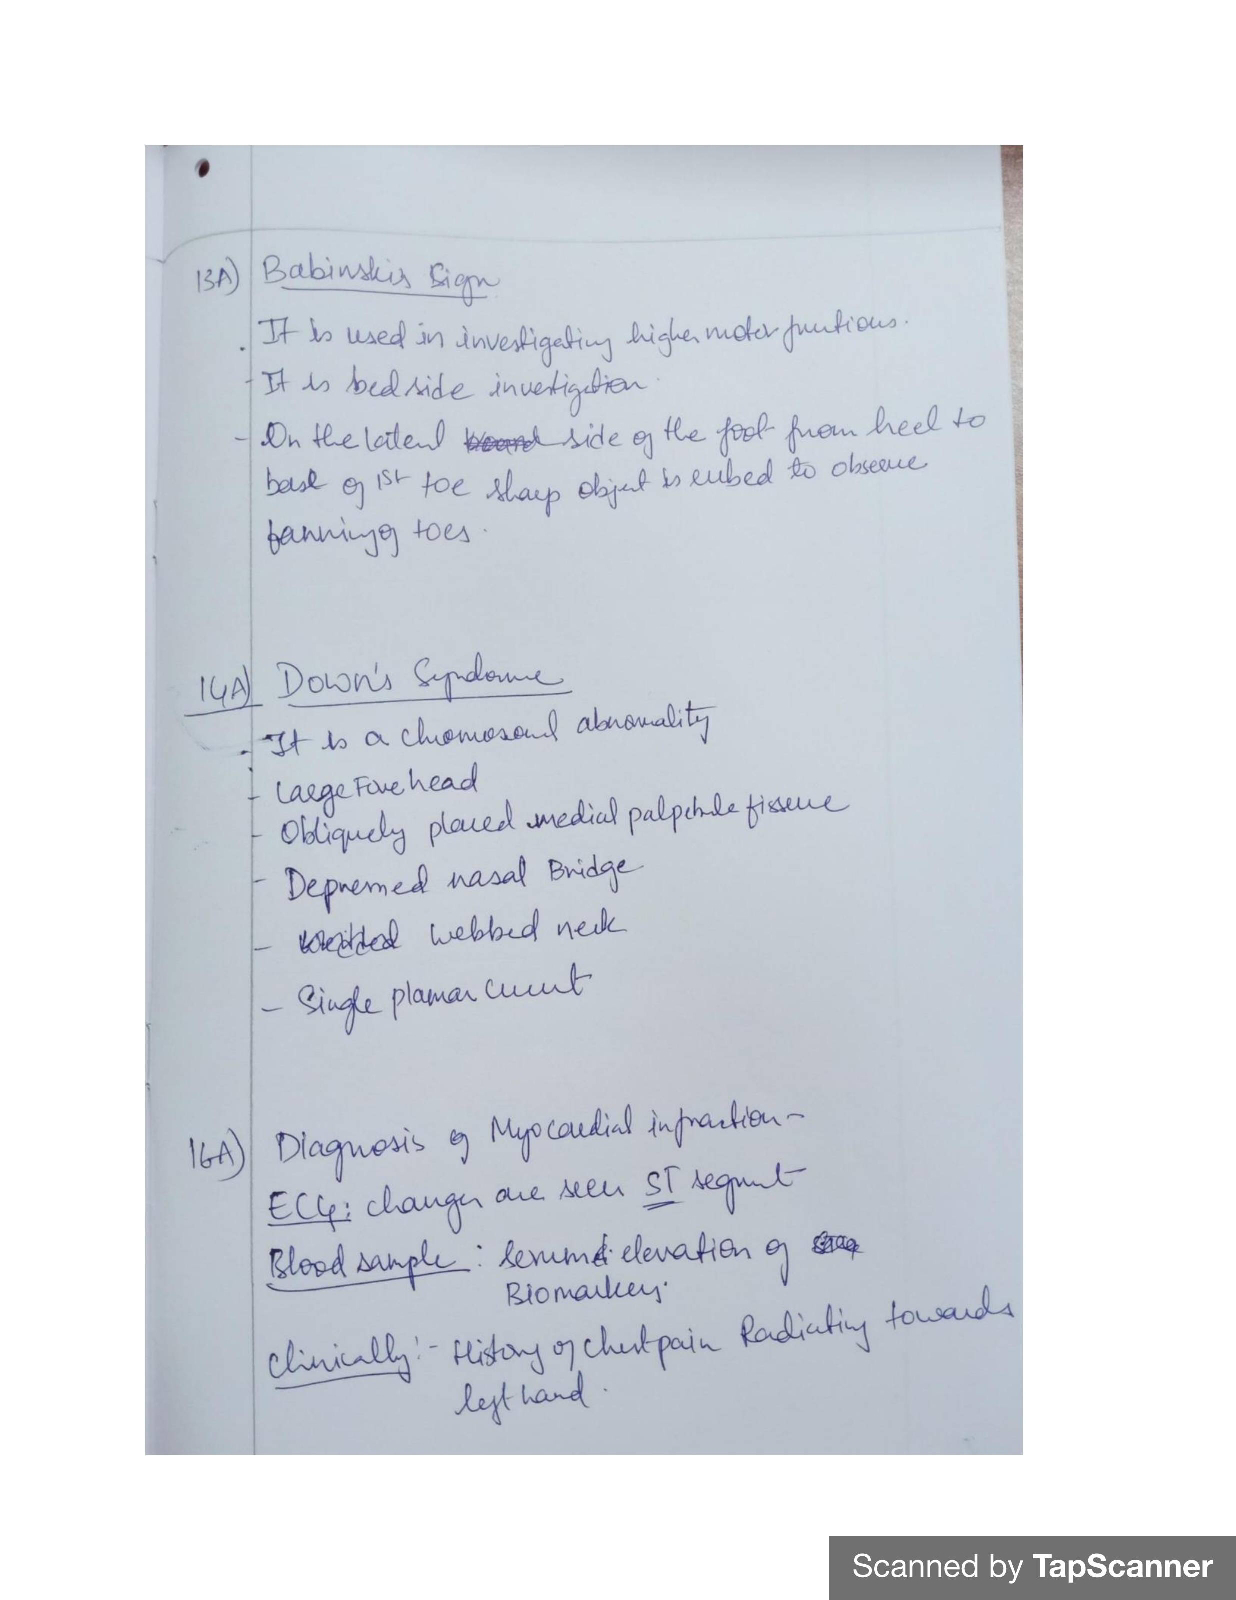 13A) Babinskis Sign
. It is used in investigating higher motor funtions.
- It is bedside investigation.
- On the lateral side of the foot from heel to
base of 1st toe sharp object is rubed to observe
fanning of toes.
14A) Down's Syndorme
. It is a chromosomal abnormality
- Large Fore head
- Obliquely placed medial palpebrale fissure
- Depressed nasal Bridge
- webbed neck
- Single plamar
16A) Diagnosis of Myocardial infraction-
ECG: changes are seen ST segment
Blood sample : Serum elevation of
Biomarkers.
Clinically:- History of Chest pain Radiating towards
left hand.
Scanned by TapScanner